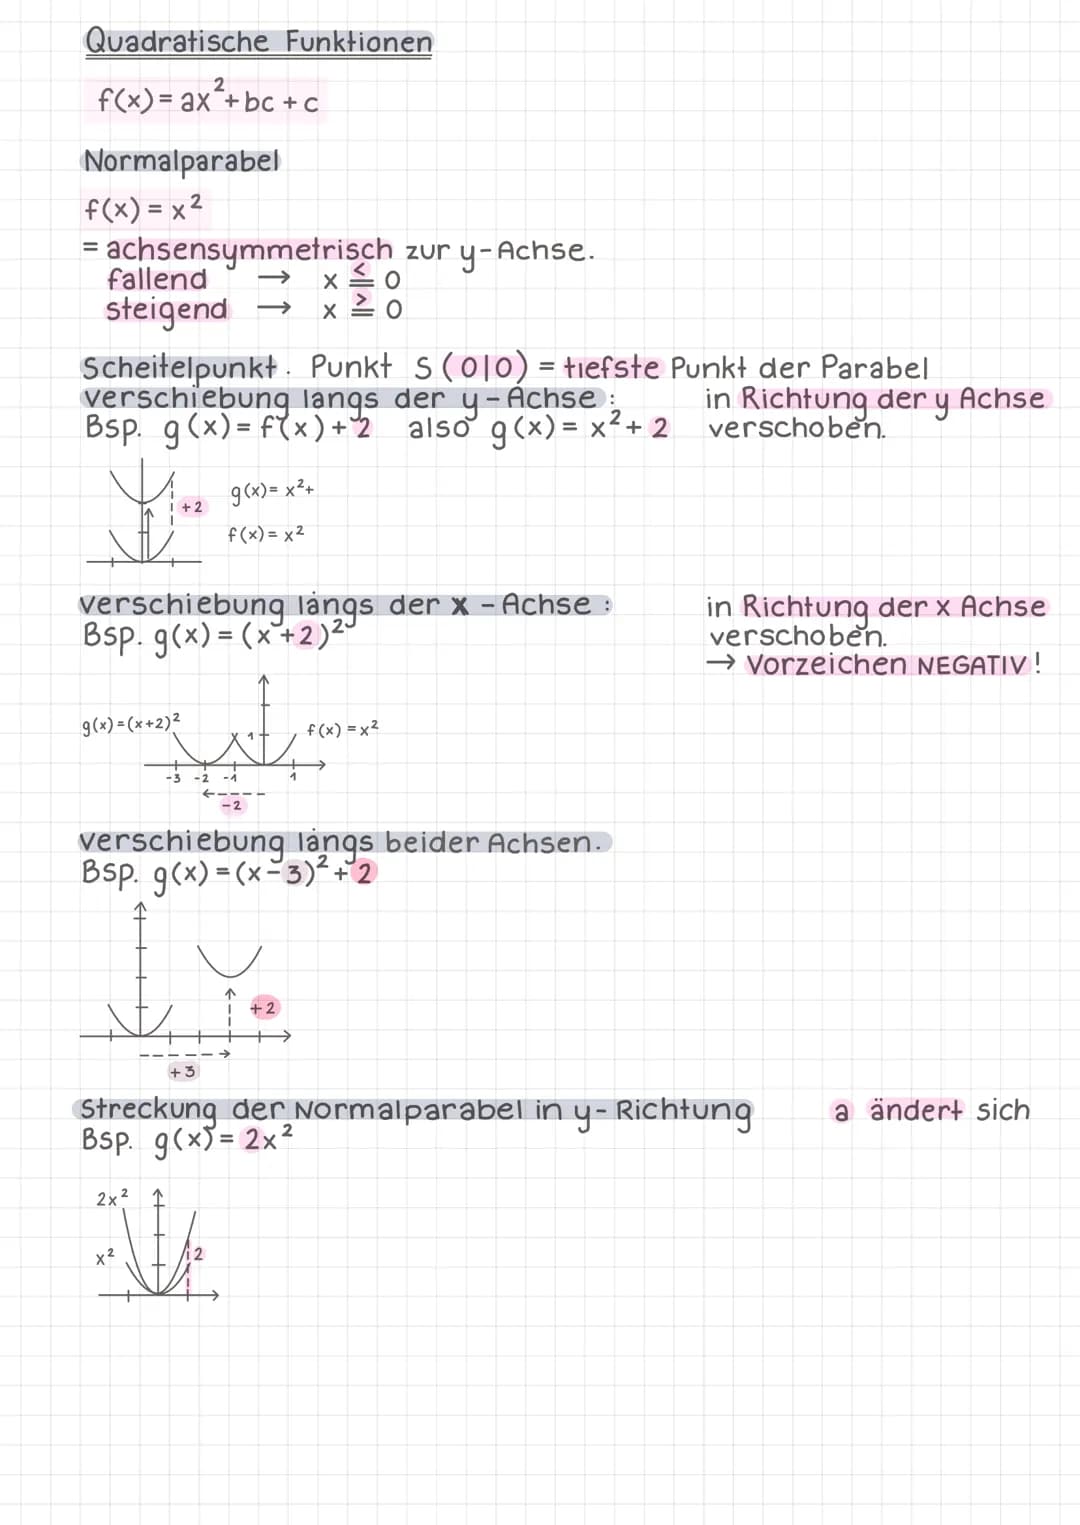 Quadratische Funktionen
f(x) = ax²+ bc + c
Normalparabel
f(x) = x²
= achsensymmetrisch zur y-Achse.
fallend → x ≤ 0
steigend → x ≥ 0
Scheitelpunkt. Punkt S (0|0) = tiefste Punkt der Parabel
verschiebung langs der y-Achse:
in Richtung der y Achse
Bsp. g(x) = f(x) + 2 also g(x) = x² + 2
verschoben.
+2
g(x) = x²+
f(x) = x²
verschiebung längs der x - Achse :
in Richtung der x Achse
Bsp. g(x) = (x+2)²
verschoben.
→ Vorzeichen NEGATIV!
g(x) = (x+2)²
1
f(x) = x²
-3 -2 -1 1
-2
verschiebung längs beider Achsen.
Bsp. g(x) = (x-3)² + 2
+2
+3
Streckung der Normalparabel in y- Richtung
a ändert sich
Bsp. g(x) = 2x²
2x²
x²
2